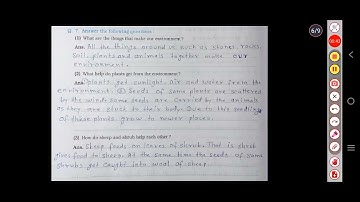 Q. 7. Answer the following questions:
(1) What are the things that make our environment ?
Ans. All the things around us such as stones, rocks
soil, plants and animals together make our
environment.
(2) What help do plants get from the environment ?
Ans. ① Plants get sunlight, air and water from the
environment. ② Seeds of some plants are scattered
by the wind. Some seeds are carried by the animals
as they are stick to their body. Due to this
of these plants grow to newer places.
(3) How do sheep and shrub help each other ?
Ans. Sheep feeds on leaves of shrub. That is shrub
gives food to sheep. At the same time the seeds of some
shrubs get caught into wool of sheep.
6/9